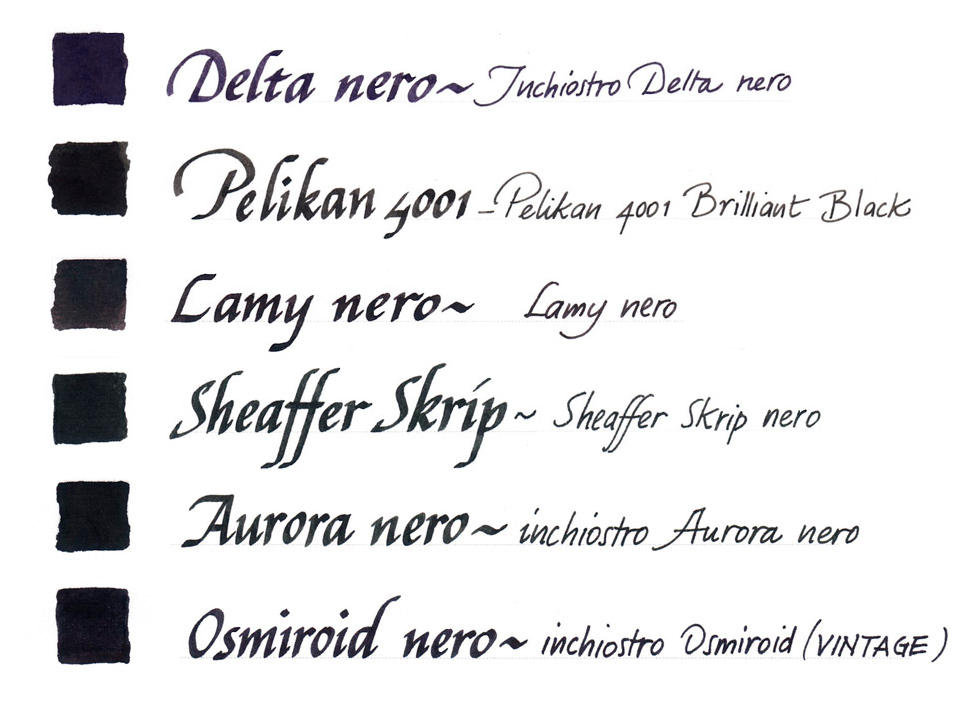 Delta nero~ Inchiostro Delta nero
Pelikan 4001 – Pelikan 4001 Brilliant Black
Lamy nero~ Lamy nero
Sheaffer Skrip~ Sheaffer Skrip nero
Aurora nero~ inchiostro Aurora nero
Osmiroid nero~ inchiostro Osmiroid (VINTAGE)